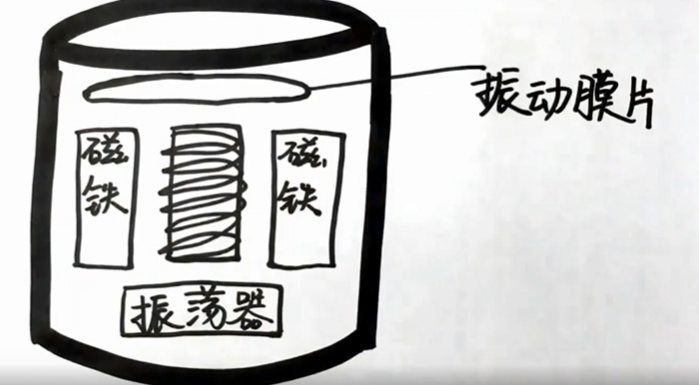 振动膜片
磁铁
磁铁
振荡器